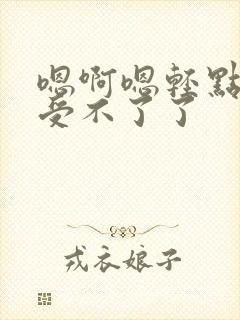 嗯啊嗯轻點
受不了了
戎衣娘子